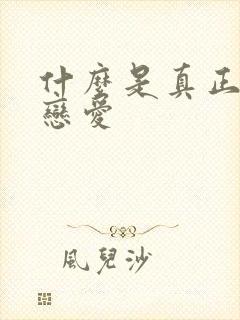 什麼是真正
戀愛
風兒沙